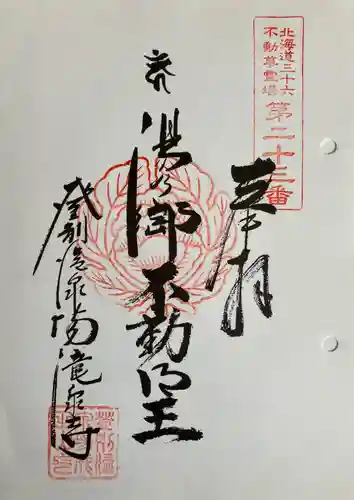 北海道三十六
不動尊霊場
第二十三番
奉拝
湯の郷不動明王
登別温泉 滝泉寺